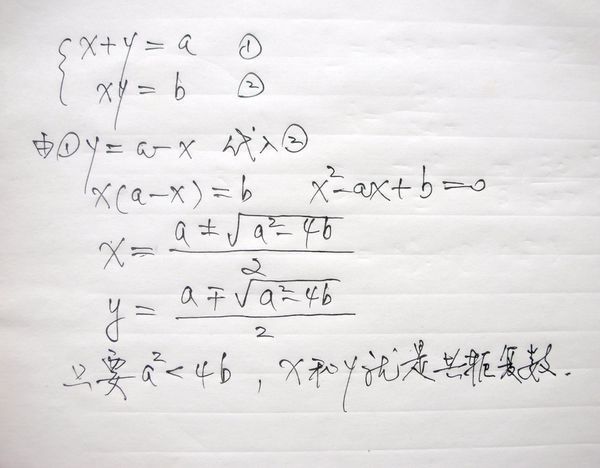 { x+y = a ①
xy = b ②
由① y = a-x 代入②
x(a-x) = b x²-ax+b=0
x = (a ± √(a²-4b)) / 2
y = (a ∓ √(a²-4b)) / 2
只要 a² < 4b , x和y就是共轭复数.